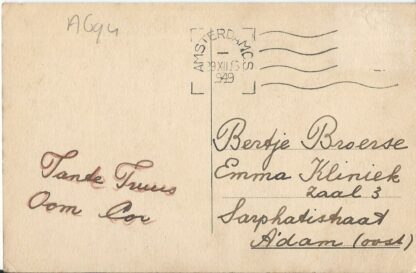 A694
AMSTERDAM CS
1949
Bertje Broerse
Emma Kliniek
zaal 3
Sarphatistraat
A'dam (oost)
Tante Truus
Oom Cor